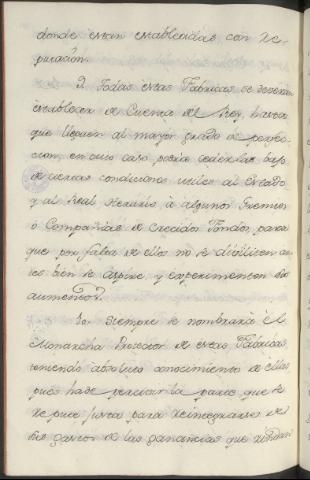 donde estan establecidas con Re-
putación.
9. Todas estas Fabricas se deverán
establecer de Cuenta del Rey, hasta
que lleguen al mayor grado de perfec-
cion, en cuio caso, podria cederlas bajo
de ciertas condiciones utiles al Estado
y al Real Herario, à algunos Gremios
ò Compañias de crecidos Fondos, para
que por falta de ellos no se debiliten an-
tes bien se aspire, y experimenten sus
aumentos.
10. Siempre se nombrará el
Monarcha Protector de estas Fabricas,
tomando absoluto conocimiento de ellas,
pues hade percivir la parte que se
repute justa para reintegrarse de
los gastos de las ganancias que rindan